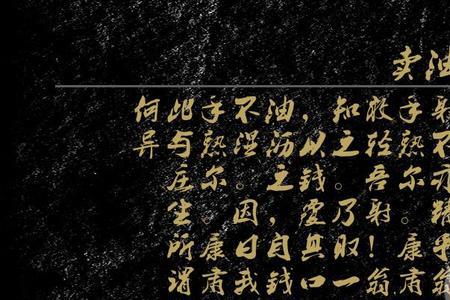 卖油
射不亦精乎翁
手熟尔。康肃
敢经吾射！翁
知之。乃取一
，以钱覆其口
油沥之，自钱
不湿。因曰我
手熟尔。康肃
此与庄生所谓
何异